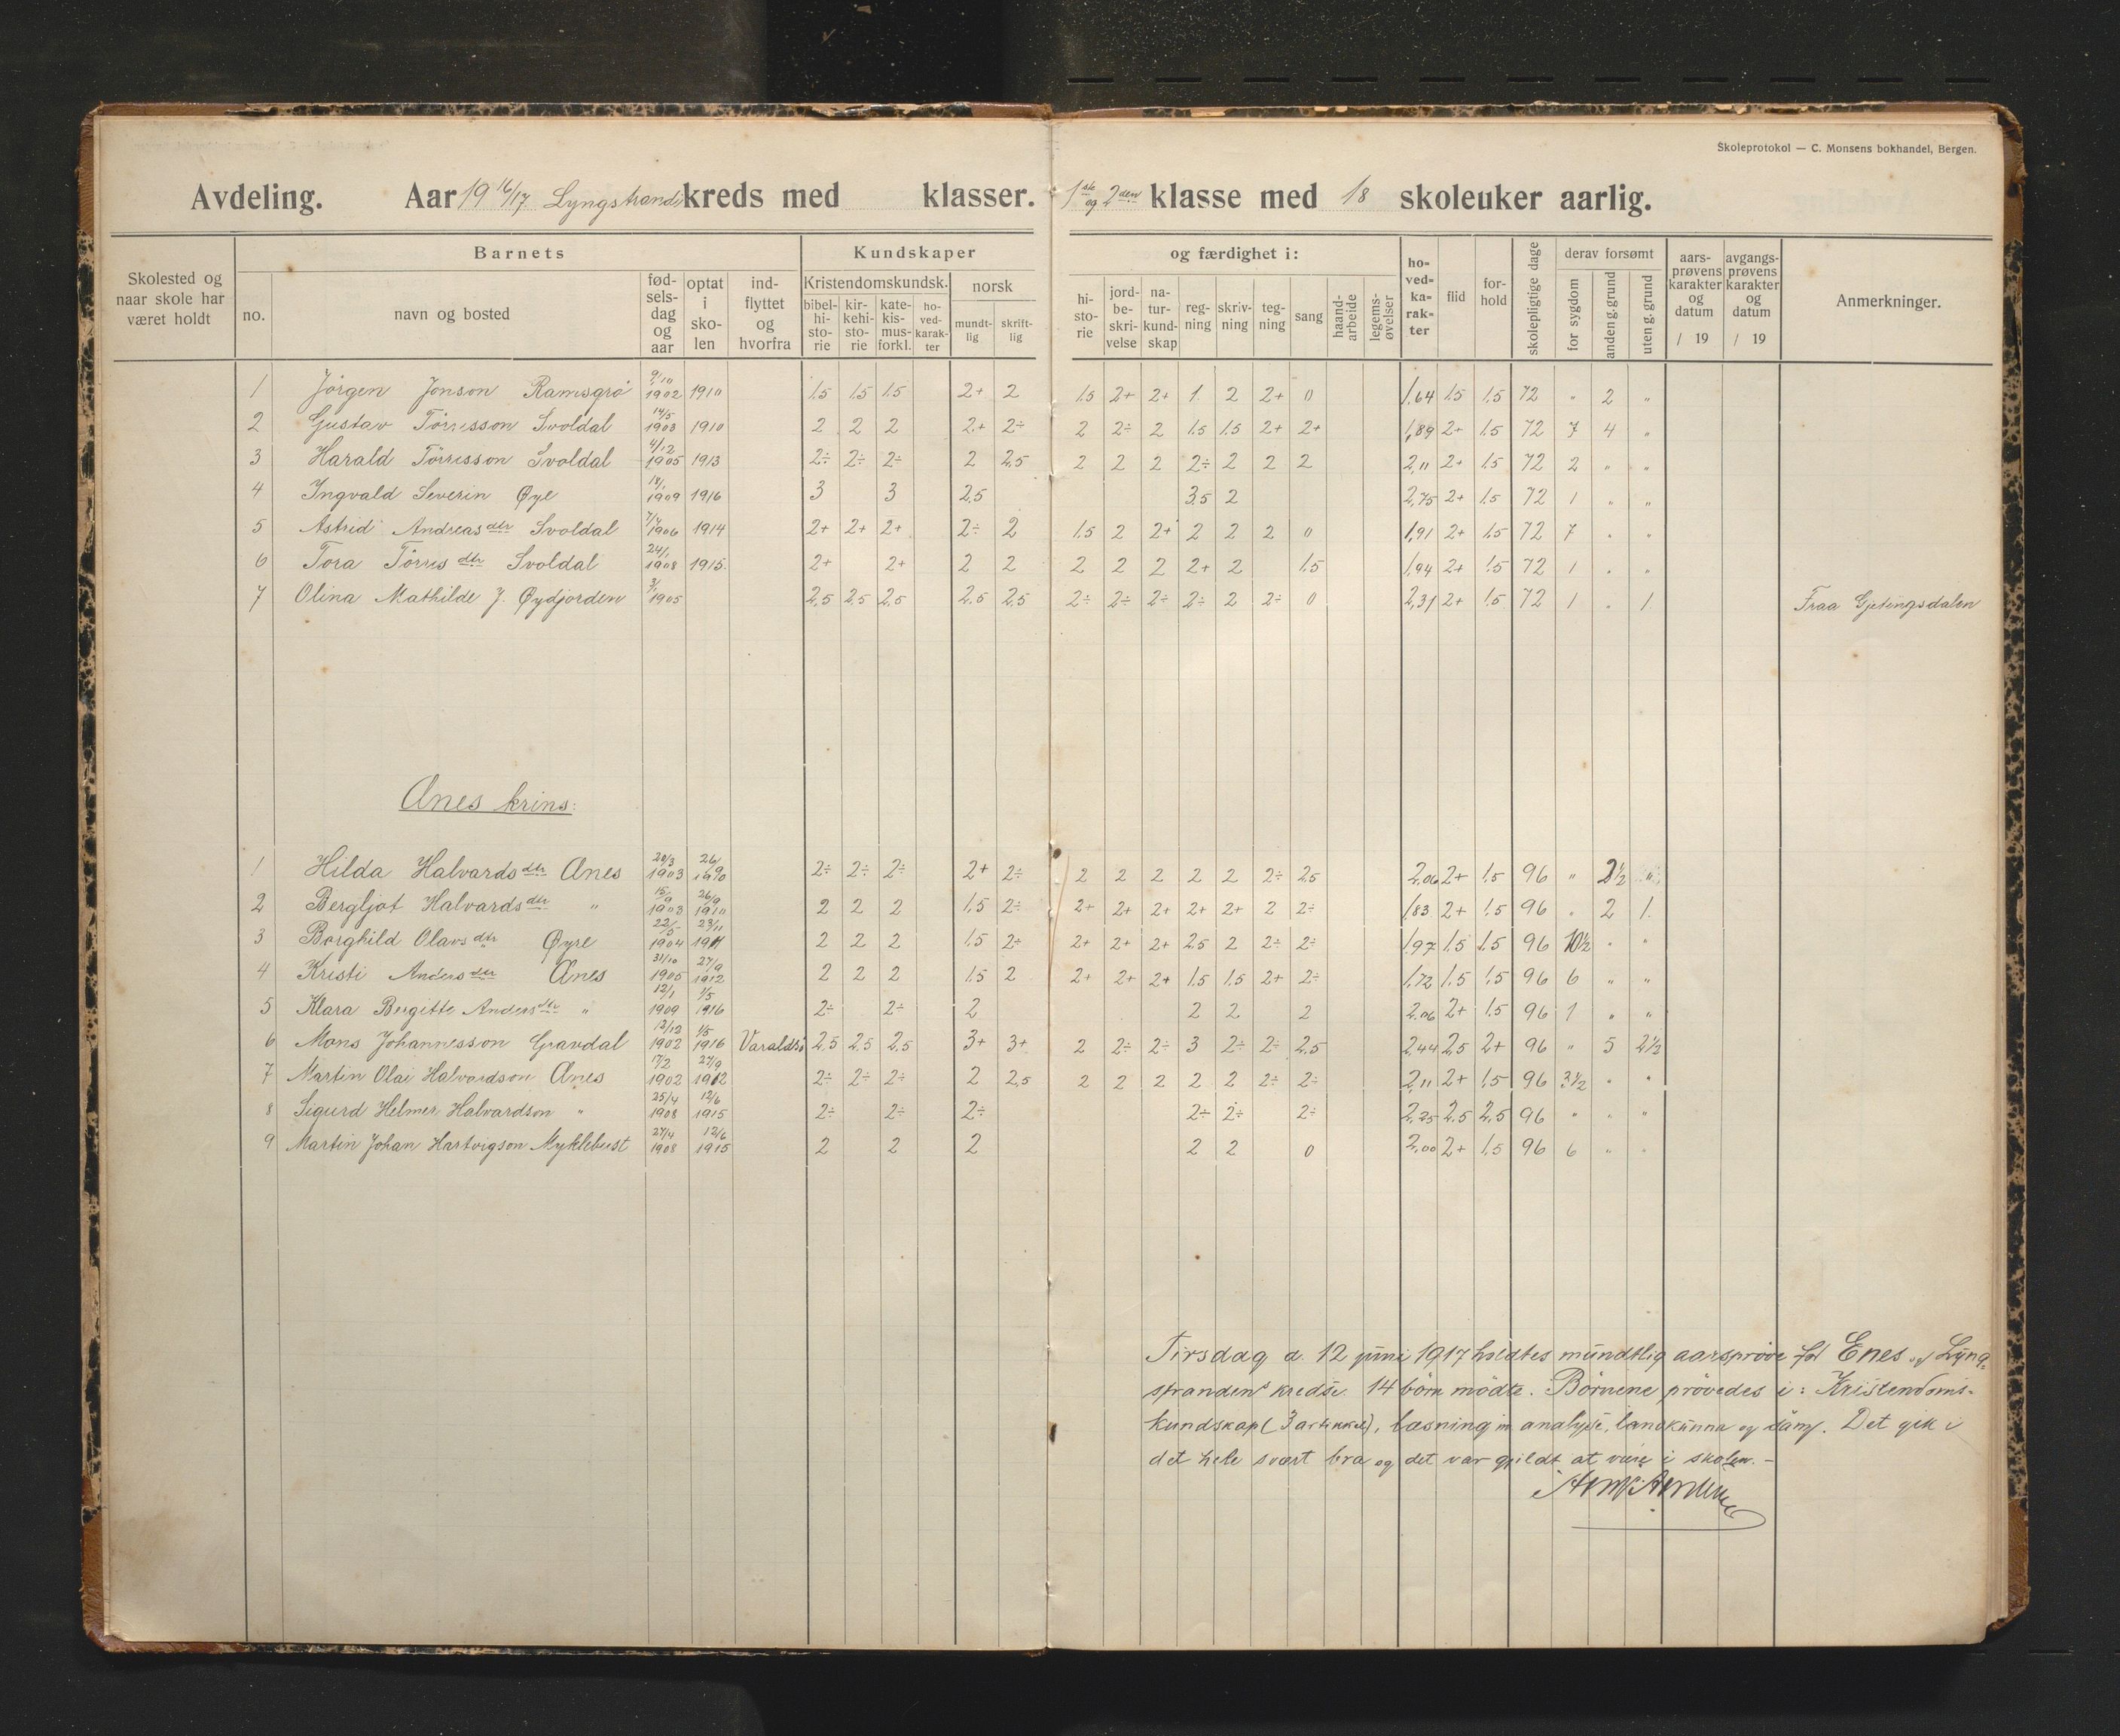 Skoleprotokol — C. Monsens bokhandel, Bergen.
Avdeling. Aar 1916/17 Lyngstrand kreds med klasser. 1ste og 2den klasse med 18 skoleuker aarlig.
Skolested og naar skole har været holdt
Barnets
no.
navn og bosted
fødselsdag og aar
optat i skolen
indflyttet og hvorfra
Kundskaper og færdighet i:
Kristendomskundsk.
bibelhistorie
kirkehistorie
katekismusforkl.
hovedkarakter
norsk
mundtlig
skriftlig
historie
jordbeskrivelse
naturkundskap
regning
skrivning
tegning
sang
haandarbeide
legemsøvelser
hovedkarakter
flid
forhold
skolepligtige dage
derav forsømt
for sygdom
anden g. grund
uten g. grund
aarsprøvens karakter og datum / 19
avgangsprøvens karakter og datum / 19
Anmerkninger.
1 Jörgen Jonson Ramsgrö 9/10 1902 1910 1.5 1.5 1.5 2+ 2 1.5 2+ 2+ 1 2 2+ 0 1,64 1.5 1,5 72 " 2 "
2 Gustav Törresson Svoldal 14/5 1903 1910 2 2 2 2+ 2÷ 2 2÷ 2 1.5 1.5 2+ 2+ 1,89 2+ 1.5 72 7 4 "
3 Harald Törresson Svoldal 4/12 1905 1913 2÷ 2÷ 2÷ 2 2,5 2 2 2 2÷ 2 2 2 2,11 2+ 1.5 72 2 " "
4 Ingvald Severin Øye 18/1 1909 1916 3 3 2,5 3,5 2 2,75 2+ 1.5 72 1 " "
5 Astrid Andreas dtr Svoldal 7/4 1906 1914 2+ 2+ 2+ 2÷ 2 1.5 2 2+ 2 2 2 0 1,91 2+ 1.5 72 7 " "
6 Tora Törres dtr Svoldal 24/1 1908 1915. 2+ 2+ 2 2 2 2 2 2+ 2 1.5 1,94 2+ 1.5 72 1 " "
7 Olina Mathilde J. Øydjorden 3/1 1905 2,5 2,5 2,5 2,5 2,5 2÷ 2÷ 2÷ 2÷ 2 2÷ 0 2,31 2+ 1.5 72 1 . 1 Fraa Gjetingsdalen
Ænes krins:
1 Hilda Halvards dtr Ænes 20/3 1903 26/9 1910 2÷ 2÷ 2÷ 2+ 2÷ 2 2 2 2 2 2÷ 2,5 2,06 2+ 1.5 96 " 2½ "
2 Bergljot Halvards dtr " 15/9 1903 26/9 1910 2 2 2 1.5 2÷ 2+ 2+ 2+ 2+ 2+ 2 2÷ 1,83 2+ 1.5 96 " 2 1.
3 Borghild Olavs dtr Øyre 22/5 1904 23/11 1911 2 2 2 1.5 2÷ 2+ 2+ 2+ 2,5 2 2÷ 2÷ 1,97 1.5 1.5 96 10½ " "
4 Kristi Anders dtr Ænes 31/10 1905 27/9 1912 2 2 2 1.5 2 2+ 2+ 2+ 1.5 1.5 2+ 2÷ 1,72 1.5 1.5 96 6 " "
5 Klara Bergitte Anders dtr " 12/1 1909 1/5 1916 2÷ 2÷ 2 2 2 2 2,06 2+ 1.5 96 1 " "
6 Mons Johannesson Gravdal 12/12 1902 1/5 1916 Varaldsö 2,5 2,5 2,5 3+ 3+ 2 2÷ 2÷ 3 2÷ 2÷ 2,5 2,44 2,5 2+ 96 " 5 2½
7 Martin Olai Halvardson Ænes 17/2 1902 27/9 1912 2÷ 2÷ 2÷ 2 2,5 2 2 2 2 2 2÷ 2÷ 2,11 2+ 1,5 96 3½ " "
8 Sigurd Helmer Halvardson " 25/4 1908 12/6 1915 2÷ 2÷ 2÷ 2÷ 2÷ 2÷ 2,25 2,5 2,5 96 " " "
9 Martin Johan Hartvigson Myklebust 27/4 1908 12/6 1915 2 2 2 2 2 0 2,00 2+ 1,5 96 6 " "
Tirsdag d. 12 juni 1917 holdtes mundtlig aarsprøve for Enes og Lyng-
strandens kredse. 14 börn mödte. Börnene prövedes i: Kristendoms-
kundskap (3 artikkel), læsning m analyse, landkunna og sang. Det gik i
det hele svært bra og det var gildt at være i skolen. –